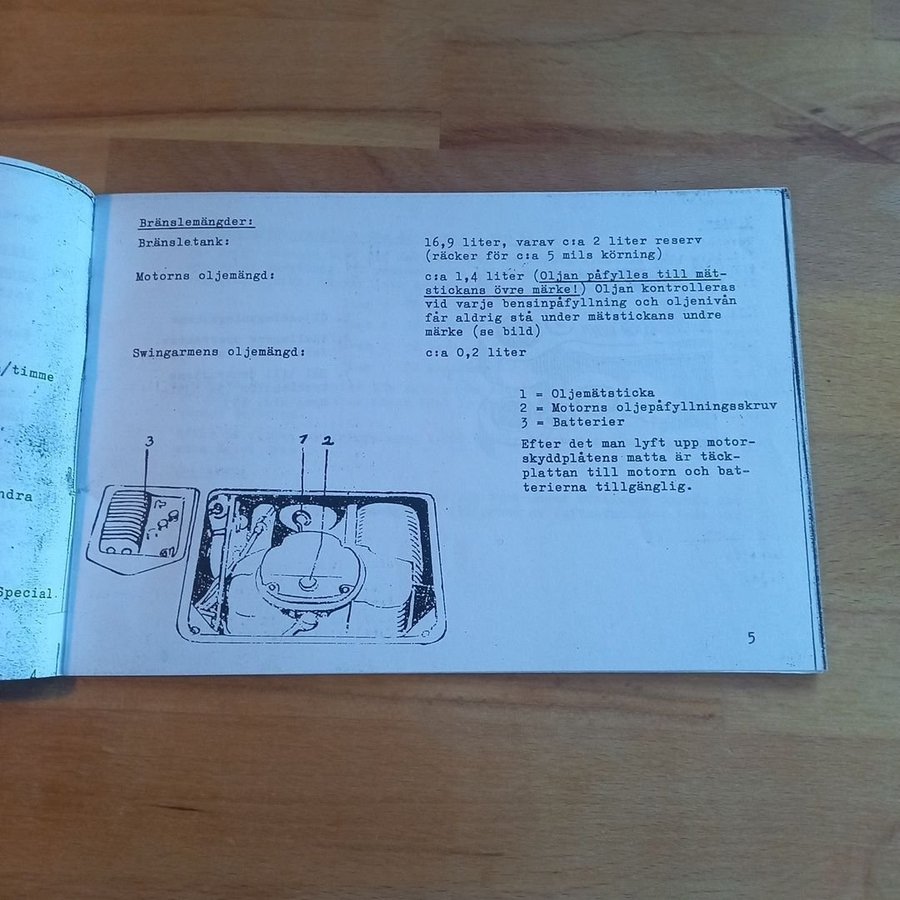 /timme
ndra
Special.
Bränslemängder:
Bränsletank: 16,9 liter, varav c:a 2 liter reserv
(räcker för c:a 5 mils körning)
Motorns oljemängd: c:a 1,4 liter (Oljan påfylles till mät-
stickans övre märke!) Oljan kontrolleras
vid varje bensinpåfyllning och oljenivån
får aldrig stå under mätstickans undre
märke (se bild)
Swingarmens oljemängd: c:a 0,2 liter
1 = Oljemätsticka
2 = Motorns oljepåfyllningsskruv
3 = Batterier
Efter det man lyft upp motor-
skyddplåtens matta är täck-
plattan till motorn och bat-
terierna tillgänglig.
3 1 2
5